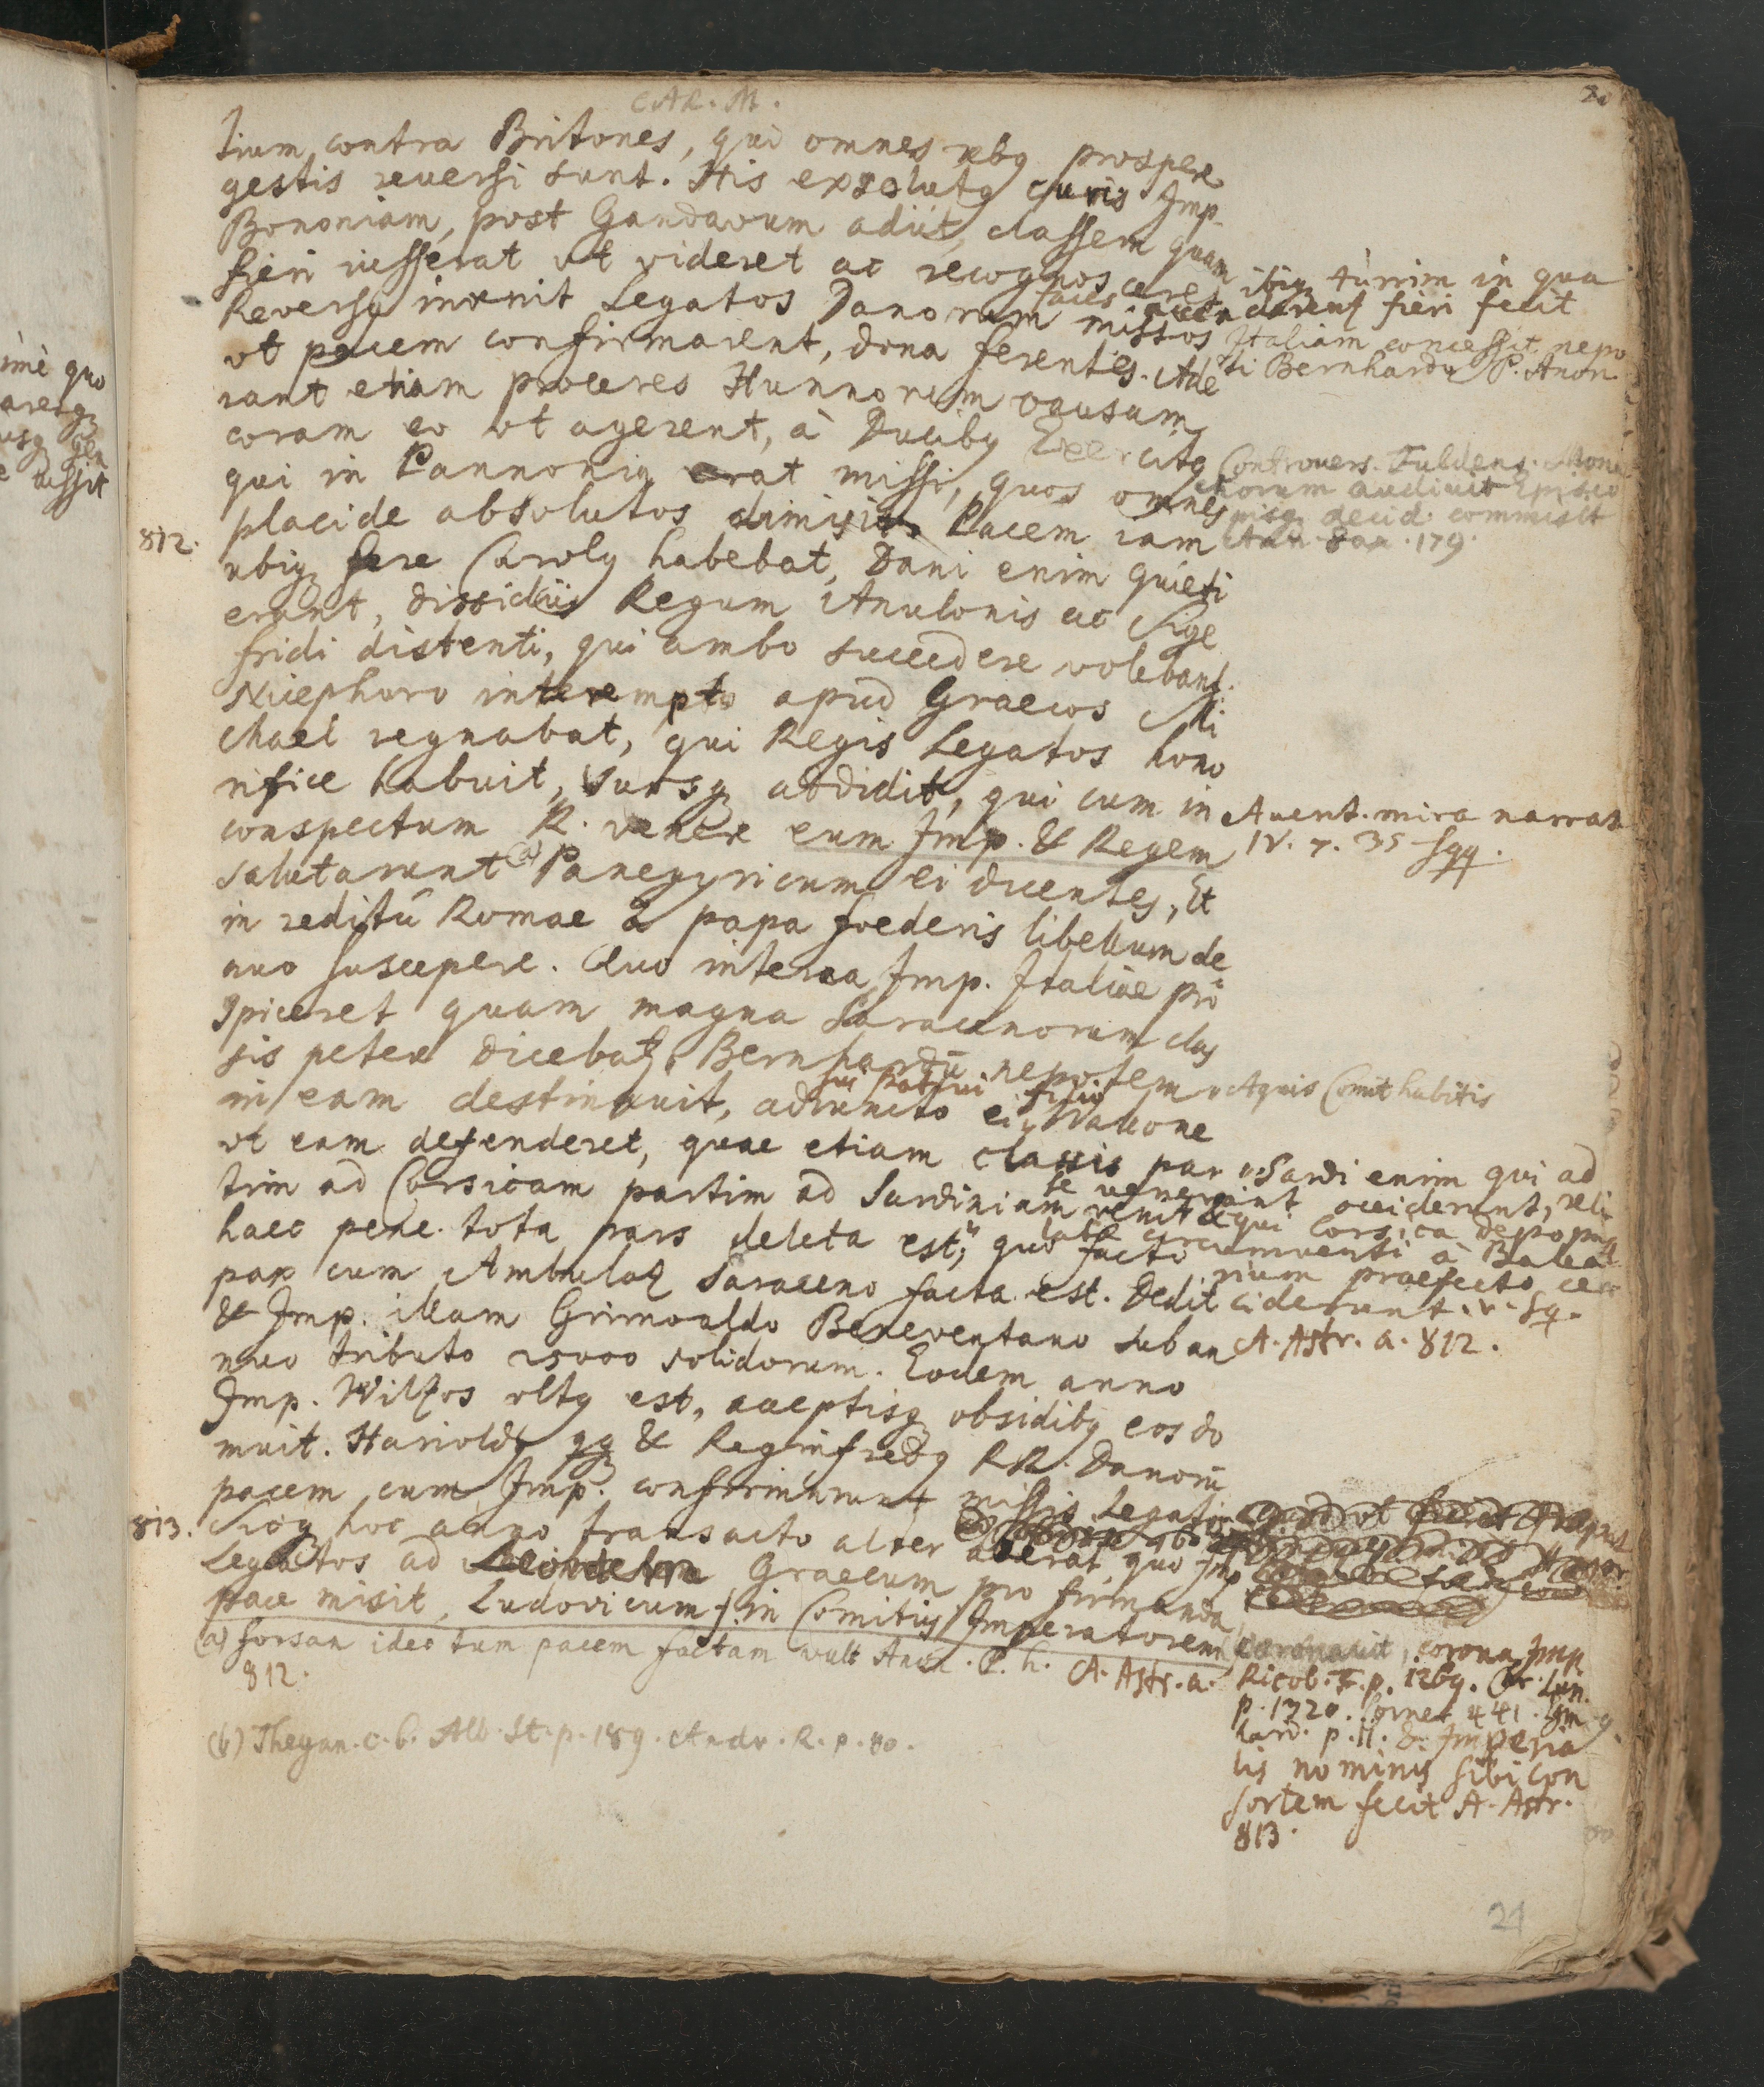 CAR. M.
tium contra Britones, qui omnes rebq prospere
gestis reuersi sunt. His exsolutq curis Imp.
Bononiam, post Gandavum adiit, classem quam
fieri iusserat vt videret ac recognosceret ibiq turrim in qua
faces accenderent fieri fecit
Reversq invenit Legatos Danorum missos
vt pacem confirmarent, dona ferentes. Ade
rant etiam proceres Hunnorum causam
coram eo vt agerent, à Ducibq Exercitq
qui in Pannoniã erat missi, quos omnes
placide absolutos dimisit. Pacem iam
812.
ubiq fere Carolq habebat, Dani enim quieti
erant, dissidiis Regum Anulonis ac Sige
fridi distenti, qui ambo succedere volebant.
Nicephoro interempto apud Graecos Mi
chael regnabat, qui Regis Legatos hono
rifice habuit, suosq addidit, qui cum in
conspectum R. venere eum Imp. & Regem
salutarunt (a) Panegyricum ei dicentes, Et
in reditu Romae a papa foederis libellum de
nuo suscepere. Quo interea Imp. Italiae pro
spiceret quam magna Saracenorum clas
sis petere dicebat, Bernhardũ nepotem
in eam destinavit, adiuncto ei Wallone
sui patrui filio
vt eam defenderet, quae etiam classis par
tim ad Corsicam partim ad Sardiniam venit &
haec pene tota pars deleta est, quo facto
pax cum Ambulaz Saraceno facta est. Dedit
& Imp. illam Grimoaldo Beneventano sub an
nuo tributo 25000 solidorum. Eodem anno
Imp. Wilzos vltq est, acceptisq obsidibq eos do
muit. Harioldq qq & Reginfredq RR. Danorũ
pacem cum Imp. confirmarunt missis Legatis
813.
Sicq hoc anno transacto alter aderat, quo Imp
Legatos ad Leonem Graecum pro firmanda
pace misit, Ludovicum f. in Comitiis Imperatorem
(a) forsan ideo tum pacem factam vult Anon. P. h. A. Astr. a.
812.
(b) Thegan. c. 6. Alb. St. p. 189. Andr. R. p. 80.
Italiam concessit nepo
ti Bernhardo P. Anon
Controuers. Fuldens. Mona
chorum audiuit Episco
pisq decid. commisit
Ann. Sax. 179.
Auent. mira narrat
IV. 7. 35 sqq.
Aquis Comit habitis
Sardi enim qui ad
se venerant occiderunt, reli
qui Corsica depopu
lata circumuenti à Balea
rium praefecto ce
ciderunt. v. Sq.
A. Astr. a. 812.
coronauit, corona Imp
Ricob. F. p. 1269.
p. 1320. Corner 441.
hard. p. 11. & Imperia
lis nominis sibi con
sortem fecit A. Astr.
813.
21